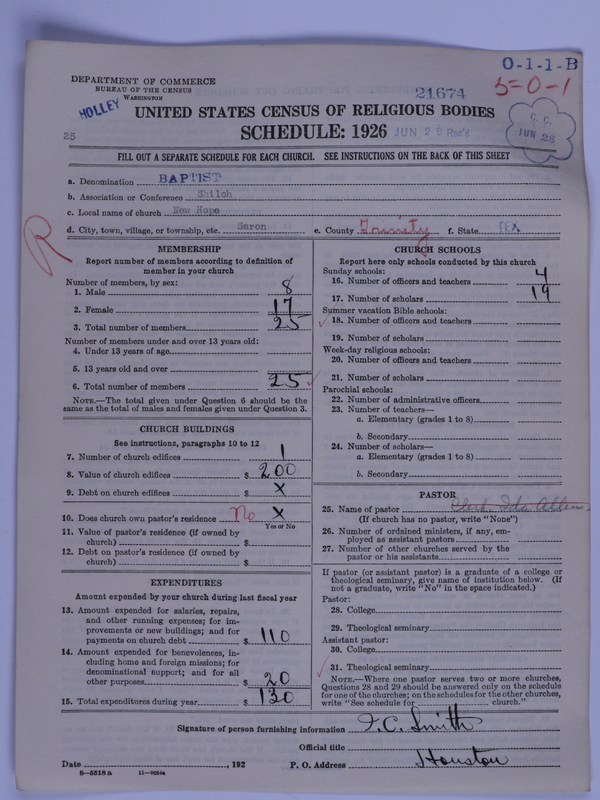 O-1-1-B
5-0-1
DEPARTMENT OF COMMERCE
BUREAU OF THE CENSUS
WASHINGTON
HOLLEY
21674
UNITED STATES CENSUS OF RELIGIOUS BODIES
SCHEDULE: 1926
JUN 28 Rec'd
C. C.
JUN 26
25
FILL OUT A SEPARATE SCHEDULE FOR EACH CHURCH. SEE INSTRUCTIONS ON THE BACK OF THIS SHEET
a. Denomination BAPTIST
b. Association or Conference Shiloh
c. Local name of church New Hope
d. City, town, village, or township, etc. Saron e. County Trinity f. State TEX
R
MEMBERSHIP
Report number of members according to definition of
member in your church
Number of members, by sex:
1. Male 8
2. Female 17
3. Total number of members 25
Number of members under and over 13 years old:
4. Under 13 years of age
5. 13 years old and over
6. Total number of members 25
NOTE.—The total given under Question 6 should be the
same as the total of males and females given under Question 3.
CHURCH BUILDINGS
See instructions, paragraphs 10 to 12
7. Number of church edifices 1
8. Value of church edifices $ 200
9. Debt on church edifices $ X
10. Does church own pastor's residence No X
Yes or No
11. Value of pastor's residence (if owned by
church) $
12. Debt on pastor's residence (if owned by
church) $
EXPENDITURES
Amount expended by your church during last fiscal year
13. Amount expended for salaries, repairs,
and other running expenses; for im-
provements or new buildings; and for
payments on church debt $ 110
14. Amount expended for benevolences, in-
cluding home and foreign missions; for
denominational support; and for all
other purposes $ 20
15. Total expenditures during year $ 130
CHURCH SCHOOLS
Report here only schools conducted by this church
Sunday schools:
16. Number of officers and teachers 4
17. Number of scholars 19
Summer vacation Bible schools:
18. Number of officers and teachers
19. Number of scholars
Week-day religious schools:
20. Number of officers and teachers
21. Number of scholars
Parochial schools:
22. Number of administrative officers
23. Number of teachers—
a. Elementary (grades 1 to 8)
b. Secondary
24. Number of scholars—
a. Elementary (grades 1 to 8)
b. Secondary
PASTOR
25. Name of pastor Clerk. Ida Allen.
(If church has no pastor, write "None")
26. Number of ordained ministers, if any, em-
ployed as assistant pastors
27. Number of other churches served by the
pastor or his assistants
If pastor (or assistant pastor) is a graduate of a college or
theological seminary, give name of institution below. (If
not a graduate, write "No" in the space indicated.)
Pastor:
28. College
29. Theological seminary
Assistant pastor:
30. College
31. Theological seminary
NOTE.—Where one pastor serves two or more churches,
Questions 28 and 29 should be answered only on the schedule
for one of the churches; on the schedules for the other churches,
write "See schedule for church."
Signature of person furnishing information F. C. Smith
Official title
Date , 192 P. O. Address Houston
8-5518a 11-9034a